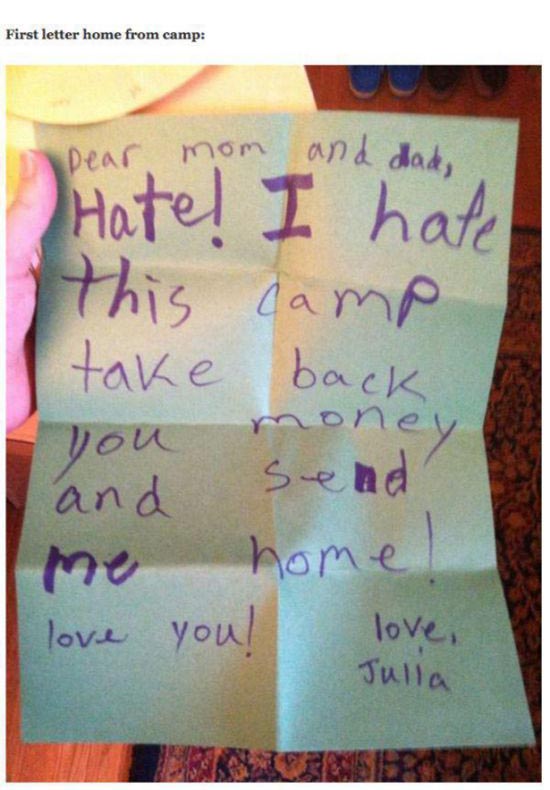 First letter home from camp:
Dear mom and dad,
Hate! I hate
this camp
take back
you money
and send
me home!
love you! love,
Julia